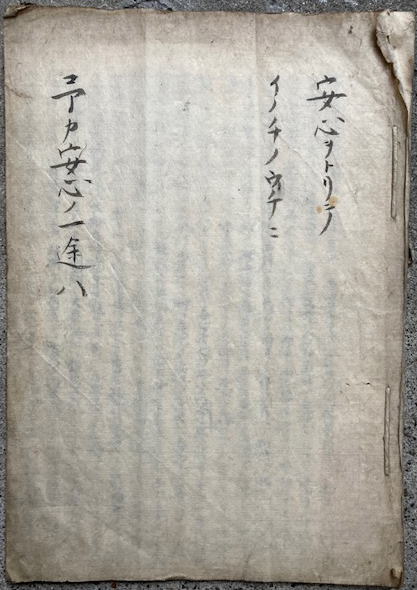 安心ヲトリ
イノチノウチニ
カ安心ノ一途ハ